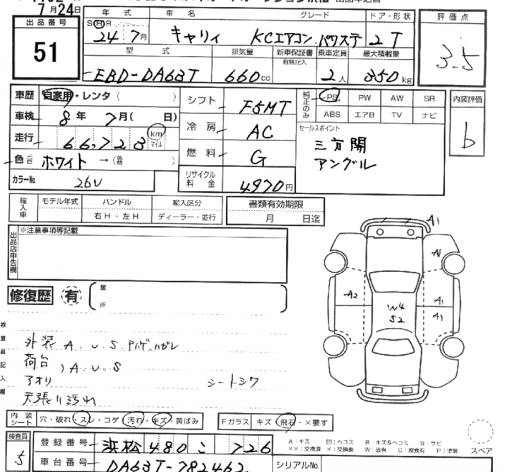 月24日
出品番号
51
年式 車名 グレード ドア・形状
24年7月 キャリィ KCエアコン パワステ 2T
型式 排気量 新車保証書 乗車定員 最大積載量
有無記入
EBD-DA63T 660cc 2人 350kg
評価点
3.5
車歴 自家用・レンタ( )
車検 8年7月( 日)
走行 66,728 km マイル
色 ホワイト →
カラーNo. 26U
シフト F5MT
冷房 AC
燃料 G
リサイクル料金 4970円
純正のみ
PS PW AW SR
ABS エアB TV ナビ
セールスポイント
三方開
アングル
内装評価
b
輸入車 モデル年式 ハンドル 輸入区分
右H・左H ディーラー・並行
書類有効期限
月 日迄
出品店申告欄
※注意事項等記載
修復歴 有
箇所
検査員記入欄
外装A.U.S
荷台
)A.U.S
アオリ シートシワ
天張り汚れ
A1
A1
A2
W4
S2
A1
A1
内装シート 穴・破れ・スレ・コゲ・汚れ・キズ・黄ばみ Fガラス キズ・飛石・×要す
検査員
5
登録番号 浜松480こ726
車台番号 DA63T-782462
シリアルNo.
スペア